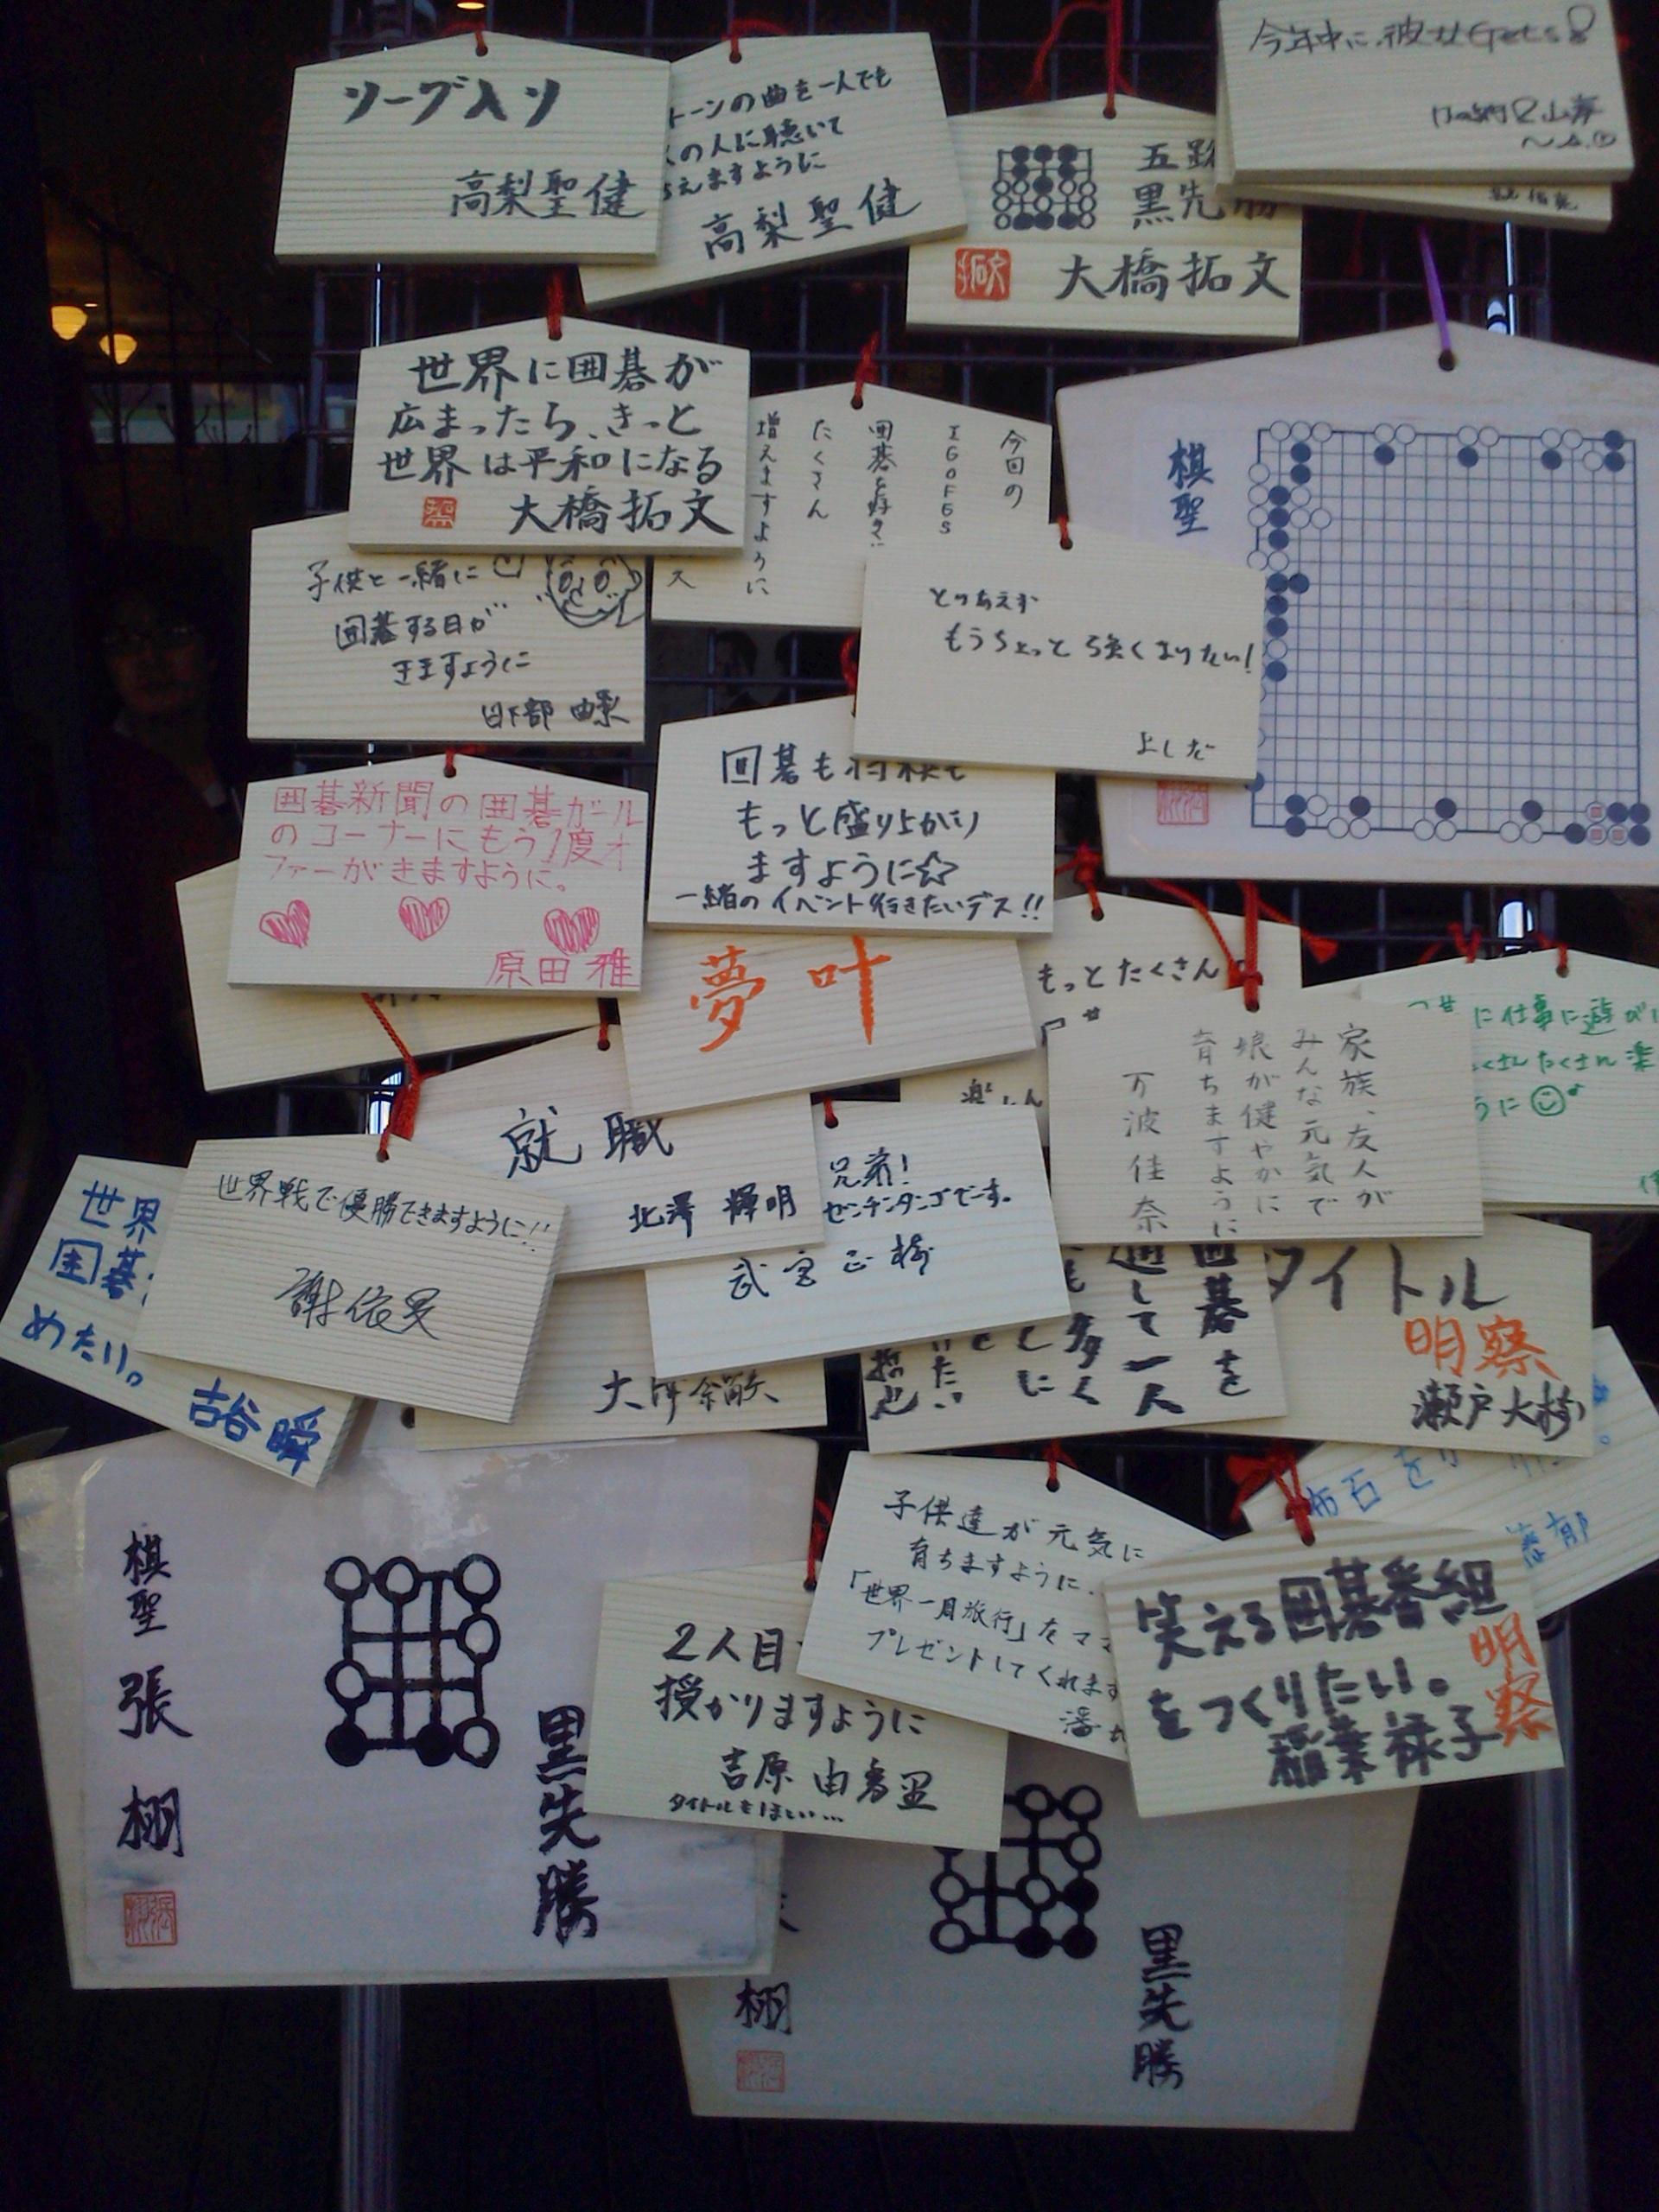 リーグ入り
高梨聖健
トーンの曲を一人でも
の人に聴いて
えますように
高梨聖健
五路
黒先勝
大橋拓文
今年中に、彼女Getする
世界に囲碁が
広まったら、きっと
世界は平和になる
大橋拓文
今回の
IGOFES
囲碁を好き
たくさん
増えますように
棋聖
子供と一緒に
囲碁する日が
きますように
日下部
とりあえず
もうちょっと強くなりたい!
よしだ
囲碁も将棋も
もっと盛り上がり
ますように☆
一緒のイベント行きたいデス!!
囲碁新聞の囲碁ガール
のコーナーにもう1度オ
ファーがきますように。
原田 雅
夢 叶
もっとたくさん
に仕事に遊び
たくさん楽
うに
家族、友人が
みんな元気で
娘が健やかに
育ちますように
万波佳奈
就職
北澤 輝明
兄弟!
ゼンチンタンゴでーす。
武宮正樹
世界戦で優勝できますように!!
謝依旻
世界
囲碁
めたい。
古谷 瞬
囲碁を
通して一人
も多く
タイトル
明察
瀬戸大樹
布石を
棋聖
張
栩
黒先勝
2人目
授かりますように
吉原 由香里
タイトルもほしい…
子供達が元気に
育ちますように、
「世界一周旅行」をママ
プレゼントしてくれます
笑える囲碁番組
をつくりたい。
稲葉禄子
明察
栩
黒先勝